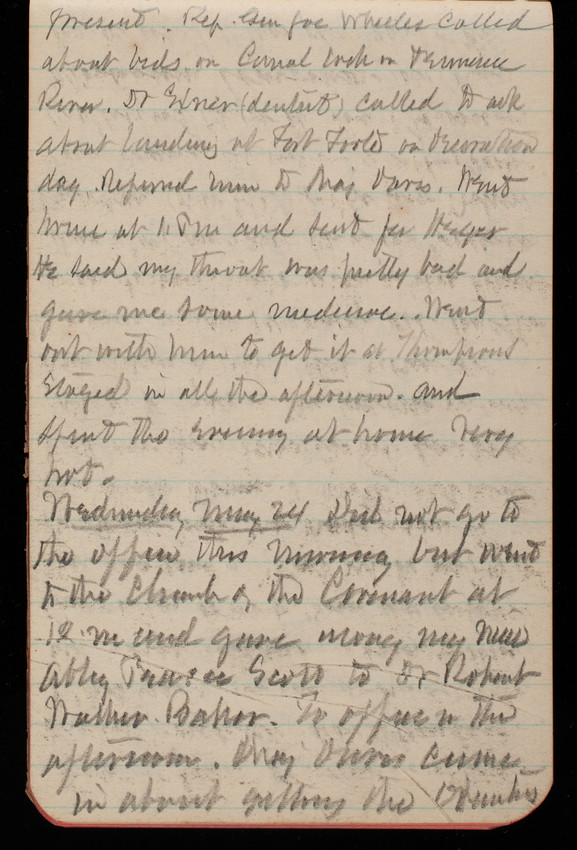 present. Rep. Gen Joe Wheeler called
about bids on Canal Lock on Tennessee
River. Dr Exner (dentist) called to ask
about landing at Fort Foote on Decoration
day. Referred him to Maj Davis. Went
home at 1. Pm and sent for Heger
He said my throat was pretty bad and
gave me some medicine. Went
out with him to get it at Thompsons
Stayed in all the afternoon. and
spent the evening at home very
hot.
Wednesday May 24 Did not go to
the office this morning but went
to the Church of the Covenant at
12 m and gave away my niece
Abby Pearce Scott to Dr Robert
Walker Baker. To office in the
afternoon. Maj Davis came
in about getting the